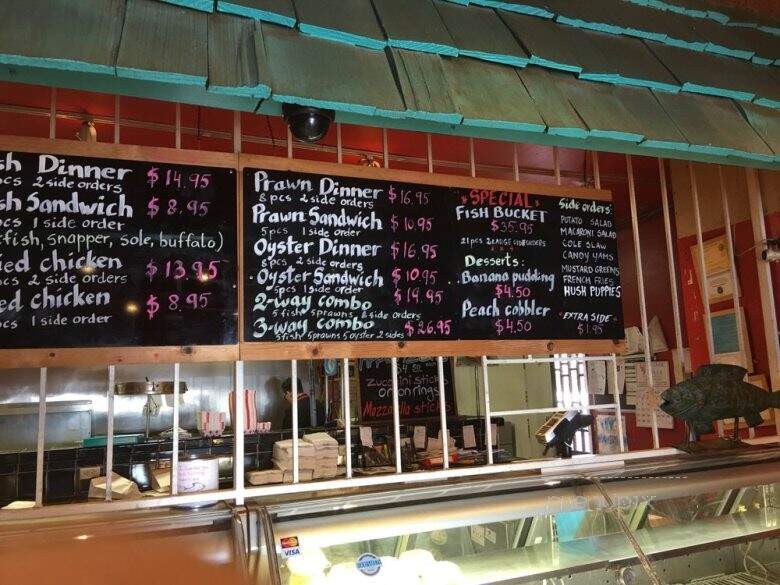 sh Dinner $14.95
pcs 2 side orders
sh Sandwich $8.95
pcs 1 side order
tfish, snapper, sole, buffalo)
ied chicken $13.95
cs 2 side orders
ed chicken $8.95
pcs 1 side order
Prawn Dinner $16.95
8 pcs 2 side orders
Prawn Sandwich $10.95
5pcs 1 side order
Oyster Dinner $16.95
8 pcs 2 side orders
Oyster Sandwich $10.95
5pcs 1 side order
2-way combo $19.95
5 fish 5 prawns 2 side orders
3-way combo $26.95
5 fish 5 prawns 5 oyster 2 sides
*SPECIAL*
FISH BUCKET
$35.95
21pcs 2 LARGE SIDEORDERS
Desserts:
Banana pudding
$4.50
Peach cobbler
$4.50
Side orders:
POTATO SALAD
MACARONI SALAD
COLE SLAW
CANDY YAMS
MUSTARD GREENS
FRENCH FRIES
HUSH PUPPIES
"EXTRA SIDE"
$1.95
Zuccini sticks
onion rings
Mozzarella sticks
VISA